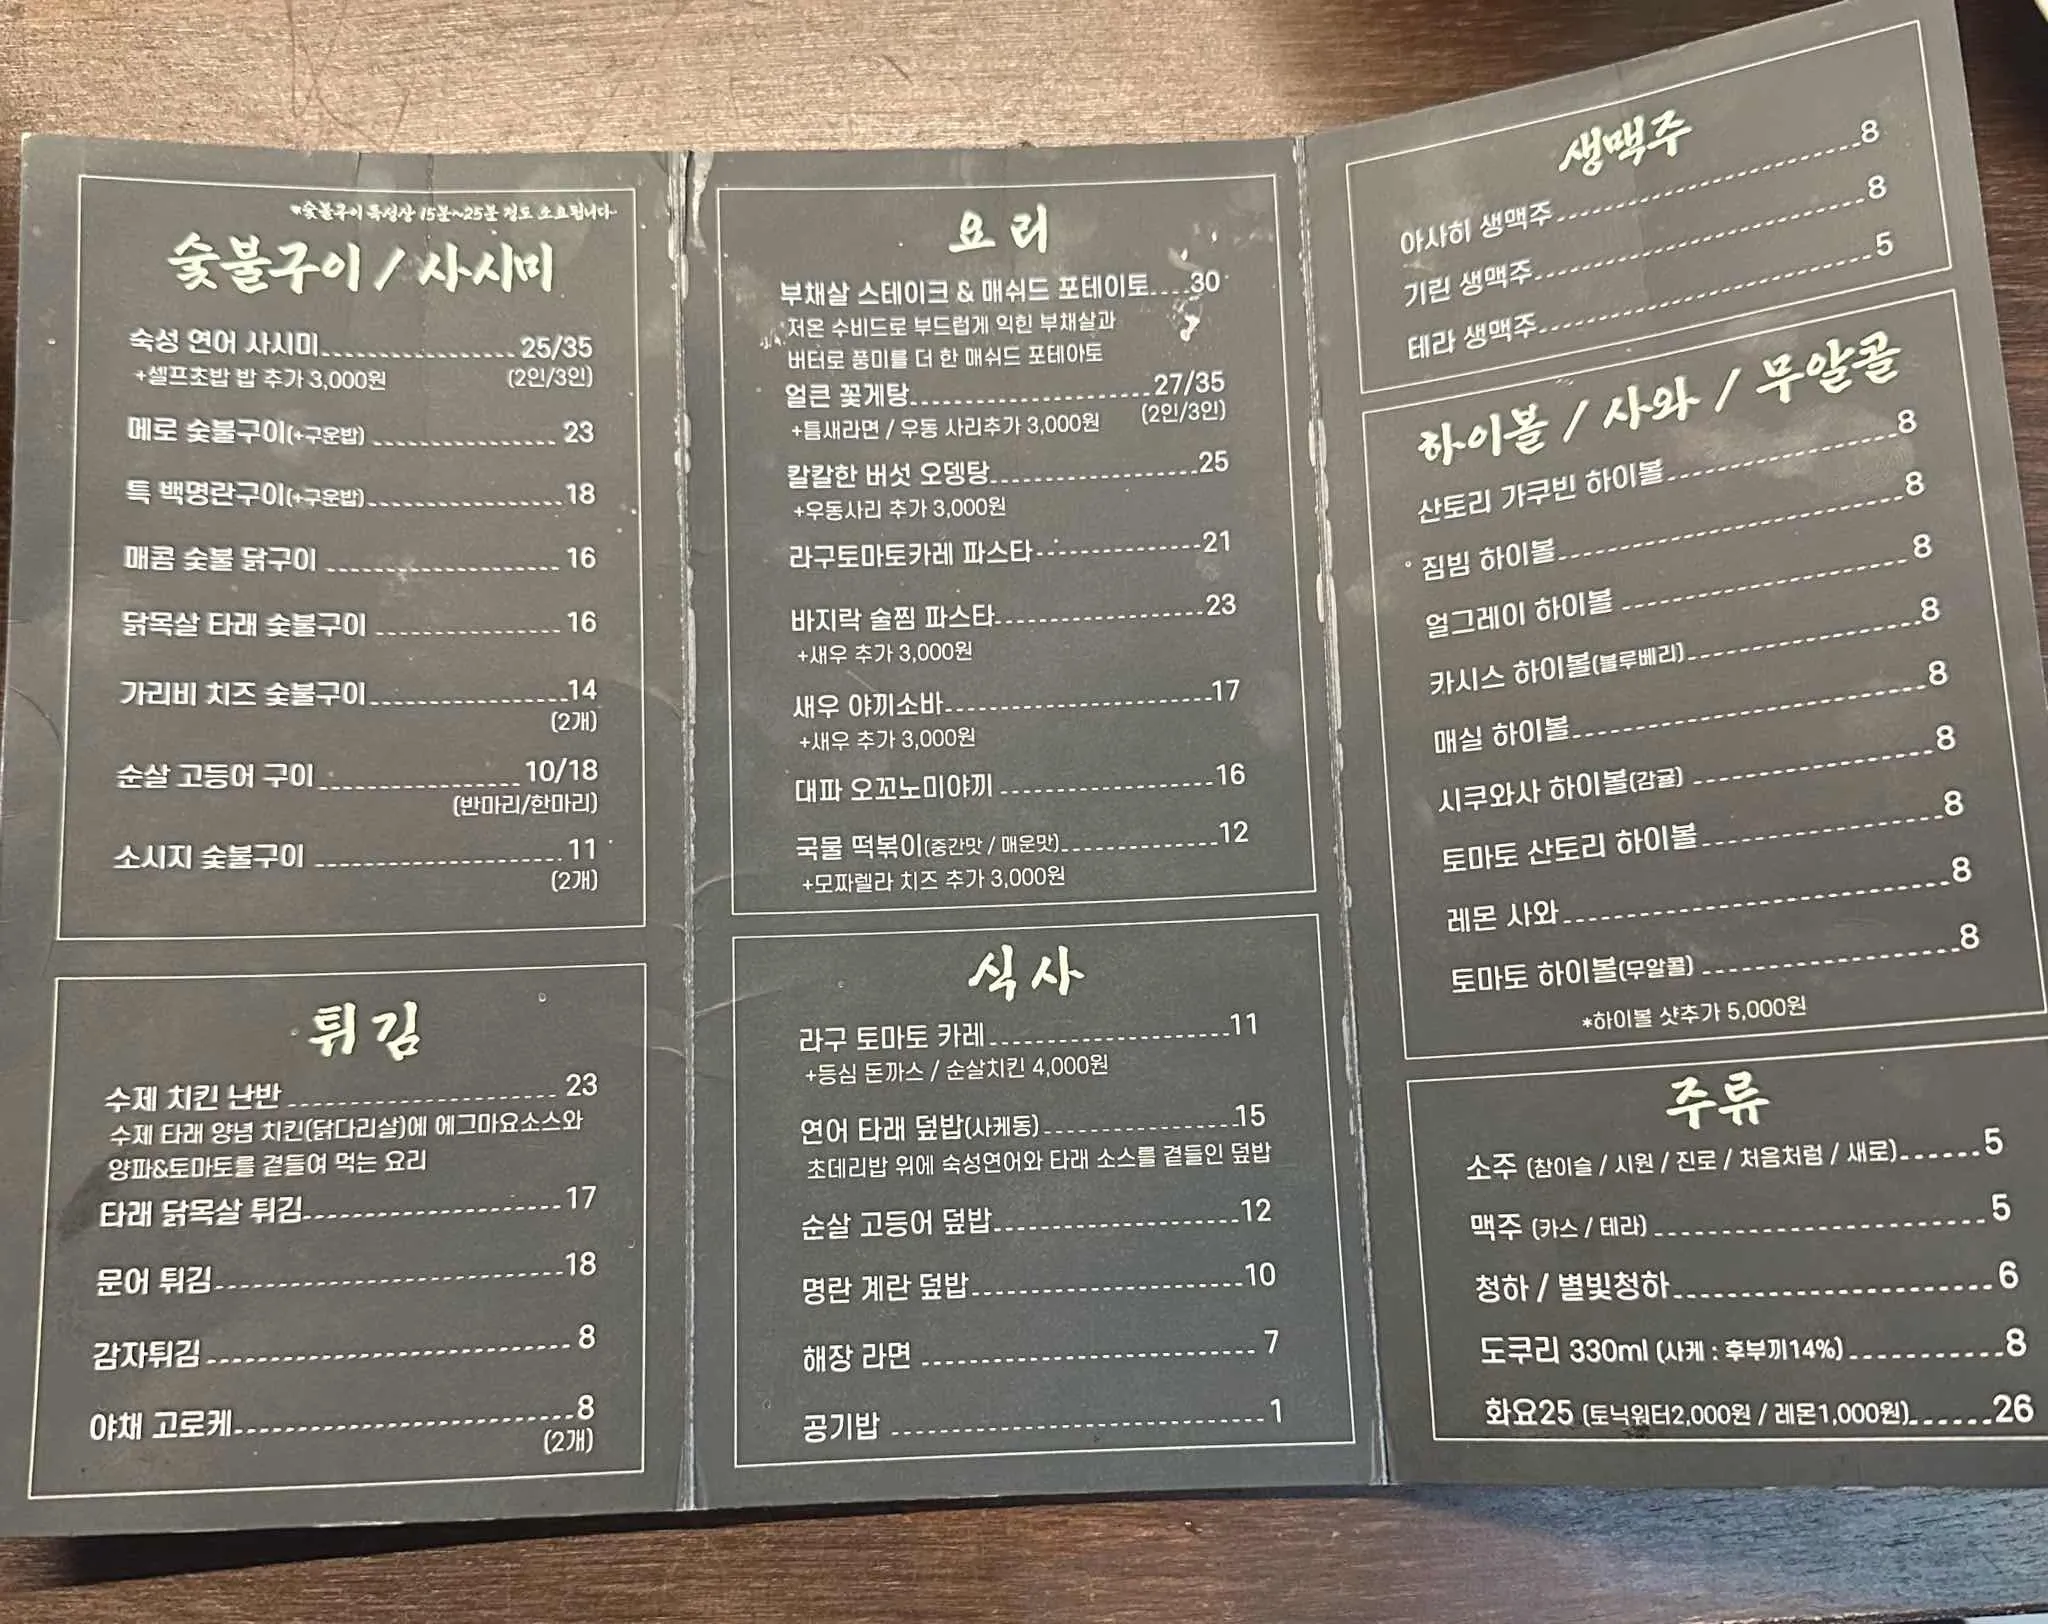 *숯불구이 특성상 15분~25분 정도 소요됩니다.
숯불구이 / 사시미
숙성 연어 사시미 25/35
+셀프초밥 밥 추가 3,000원 (2인/3인)
메로 숯불구이(+구운밥) 23
특 백명란구이(+구운밥) 18
매콤 숯불 닭구이 16
닭목살 타래 숯불구이 16
가리비 치즈 숯불구이 14
(2개)
순살 고등어 구이 10/18
(반마리/한마리)
소시지 숯불구이 11
(2개)
튀김
수제 치킨 난반 23
수제 타래 양념 치킨(닭다리살)에 에그마요소스와
양파&토마토를 곁들여 먹는 요리
타래 닭목살 튀김 17
문어 튀김 18
감자튀김 8
야채 고로케 8
(2개)
요리
부채살 스테이크 & 매쉬드 포테이토 30
저온 수비드로 부드럽게 익힌 부채살과
버터로 풍미를 더 한 매쉬드 포테아토
얼큰 꽃게탕 27/35
+틈새라면 / 우동 사리추가 3,000원 (2인/3인)
칼칼한 버섯 오뎅탕 25
+우동사리 추가 3,000원
라구토마토카레 파스타 21
바지락 술찜 파스타 23
+새우 추가 3,000원
새우 야끼소바 17
+새우 추가 3,000원
대파 오꼬노미야끼 16
국물 떡볶이(중간맛 / 매운맛) 12
+모짜렐라 치즈 추가 3,000원
식사
라구 토마토 카레 11
+등심 돈까스 / 순살치킨 4,000원
연어 타래 덮밥(사케동) 15
초데리밥 위에 숙성연어와 타래 소스를 곁들인 덮밥
순살 고등어 덮밥 12
명란 계란 덮밥 10
해장 라면 7
공기밥 1
생맥주
아사히 생맥주 8
기린 생맥주 8
테라 생맥주 5
하이볼 / 사와 / 무알콜
산토리 가쿠빈 하이볼 8
짐빔 하이볼 8
얼그레이 하이볼 8
카시스 하이볼(블루베리) 8
매실 하이볼 8
시쿠와사 하이볼(감귤) 8
토마토 산토리 하이볼 8
레몬 사와 8
토마토 하이볼(무알콜) 8
*하이볼 샷추가 5,000원
주류
소주 (참이슬 / 시원 / 진로 / 처음처럼 / 새로) 5
맥주 (카스 / 테라) 5
청하 / 별빛청하 6
도쿠리 330ml (사케 : 후부끼14%) 8
화요25 (토닉워터2,000원 / 레몬1,000원) 26